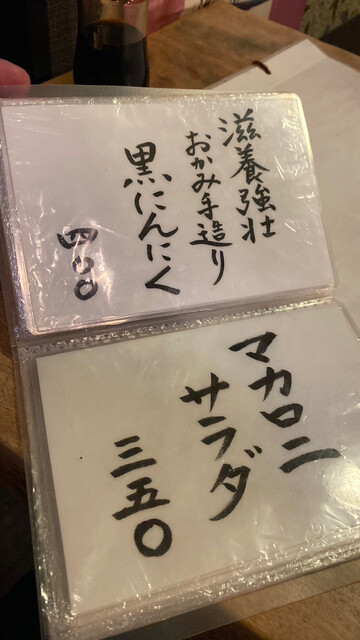 滋養強壮
おかみ手造り
黒にんにく
四〇〇
マカロニ
サラダ
三五〇